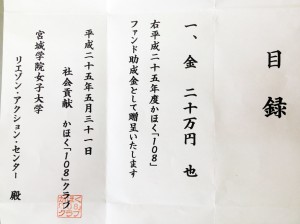 目録
一、金 二十万円 也
右平成二十五年度かほく「108」
ファンド助成金として贈呈いたします
平成二十五年五月三十一日
社会貢献 かほく「108」クラブ
宮城学院女子大学
リエゾン・アクション・センター 殿